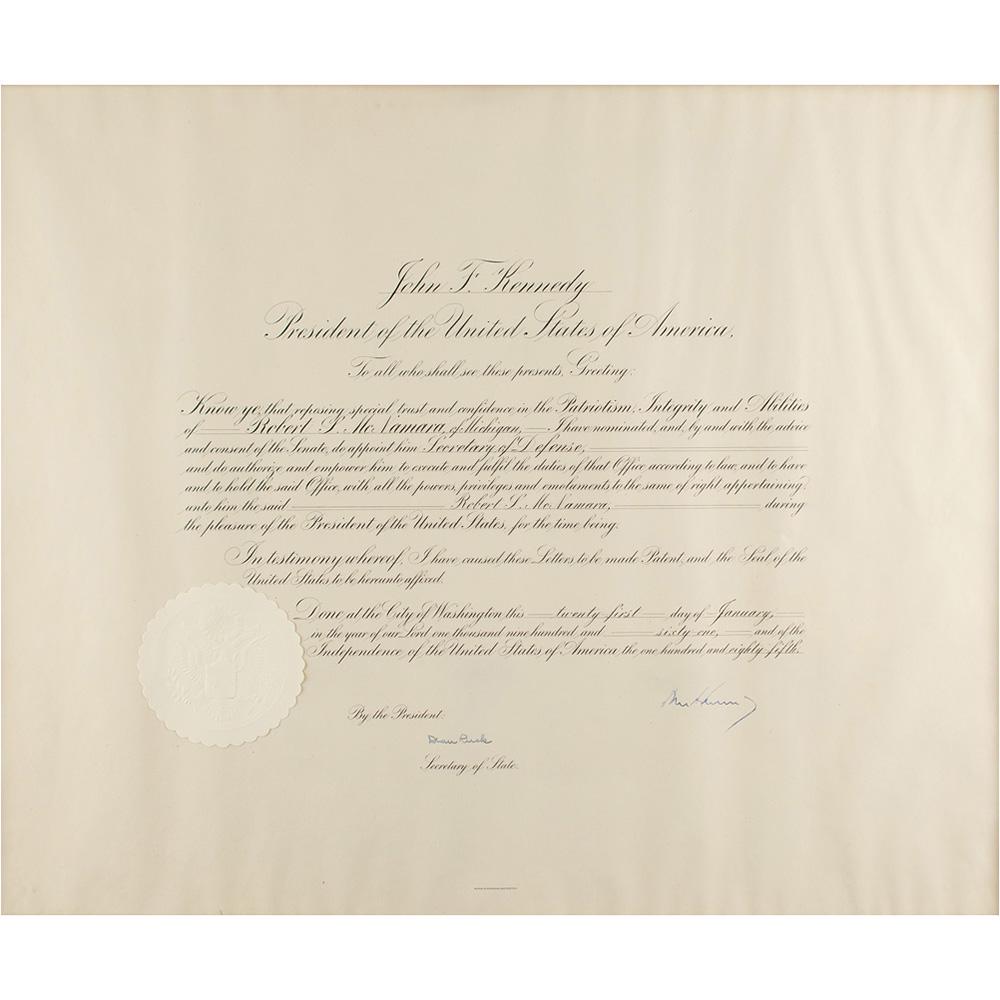 John F. Kennedy
President of the United States of America,
To all who shall see these presents, Greeting:
Know ye, that reposing special trust and confidence in the Patriotism, Integrity and Abilities
of Robert S. McNamara, of Michigan, I have nominated, and, by and with the advice
and consent of the Senate, do appoint him Secretary of Defense,
and do authorize and empower him to execute and fulfil the duties of that Office according to law, and to have
and to hold the said Office, with all the powers, privileges and emoluments to the same of right appertaining,
unto him the said Robert S. McNamara, during
the pleasure of the President of the United States, for the time being.
In testimony whereof, I have caused these Letters to be made Patent, and the Seal of the
United States to be hereunto affixed.
Done at the City of Washington this twenty-first day of January,
in the year of our Lord one thousand nine hundred and sixty-one, and of the
Independence of the United States of America, the one hundred and eighty-fifth.
By the President:
Dean Rusk
Secretary of State.